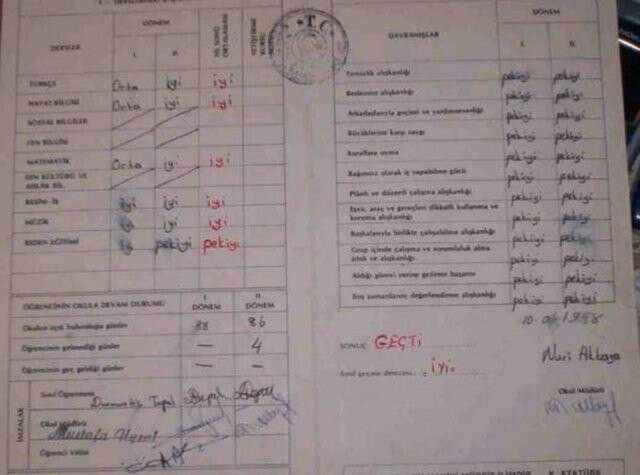 DERSLER DÖNEM YIL SONU ORTALAMASI YETİŞTİRME KURSU
I. II.
TÜRKÇE Orta iyi iyi
HAYAT BİLGİSİ Orta iyi iyi
SOSYAL BİLGİLER
FEN BİLGİSİ
MATEMATİK Orta iyi iyi
DİN KÜLTÜRÜ VE
AHLÂK BİL.
RESİM-İŞ iyi iyi iyi
MÜZİK iyi iyi iyi
BEDEN EĞİTİMİ iyi pekiyi pekiyi
ÖĞRENCİNİN OKULA DEVAM DURUMU I. DÖNEM II. DÖNEM
Okulun açık bulunduğu günler 88 86
Öğrencinin gelmediği günler — 4
Öğrencinin geç geldiği günler — —
İMZALAR
Sınıf Öğretmeni
Okul Müdürü
Mustafa
Öğrenci Velisi
T.C.
DAVRANIŞLAR DÖNEM
I. II.
Temizlik alışkanlığı pekiyi pekiyi
Beslenme alışkanlığı pekiyi pekiyi
Arkadaşlarıyla geçimi ve yardımseverliği pekiyi pekiyi
Büyüklerine karşı saygı pekiyi pekiyi
Kurallara uyma pekiyi pekiyi
Bağımsız olarak iş yapabilme gücü pekiyi pekiyi
Plânlı ve düzenli çalışma alışkanlığı pekiyi pekiyi
Eşya, araç ve gereçleri dikkatli kullanma ve
koruma alışkanlığı pekiyi pekiyi
Başkalarıyla birlikte çalışabilme alışkanlığı pekiyi pekiyi
Grup içinde çalışma ve sorumluluk alma
istek ve alışkanlığı pekiyi pekiyi
Aldığı görevi yerine getirme başarısı pekiyi pekiyi
Boş zamanlarını değerlendirme alışkanlığı pekiyi pekiyi
SONUÇ GEÇTİ
Nuri Akkaya
Sınıf geçme derecesi : iyi.
Okul Müdürü
K. ATATÜRK